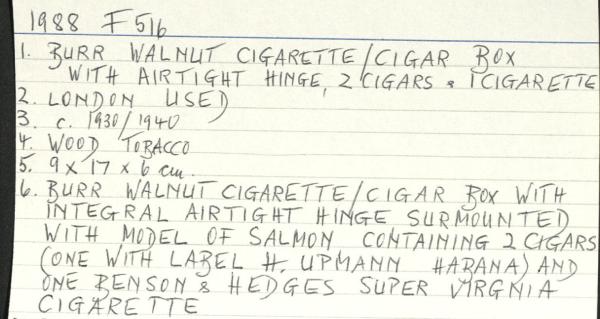 1988 F516
1. BURR WALNUT CIGARETTE/CIGAR BOX
WITH AIRTIGHT HINGE, 2 CIGARS & 1 CIGARETTE
2. LONDON USED
3. c. 1930/1940
4. WOOD TOBACCO
5. 9 x 17 x 6 cm.
6. BURR WALNUT CIGARETTE/CIGAR BOX WITH
INTEGRAL AIRTIGHT HINGE SURMOUNTED
WITH MODEL OF SALMON CONTAINING 2 CIGARS
(ONE WITH LABEL H. UPMANN HABANA) AND
ONE BENSON & HEDGES SUPER VIRGNIA
CIGARETTE